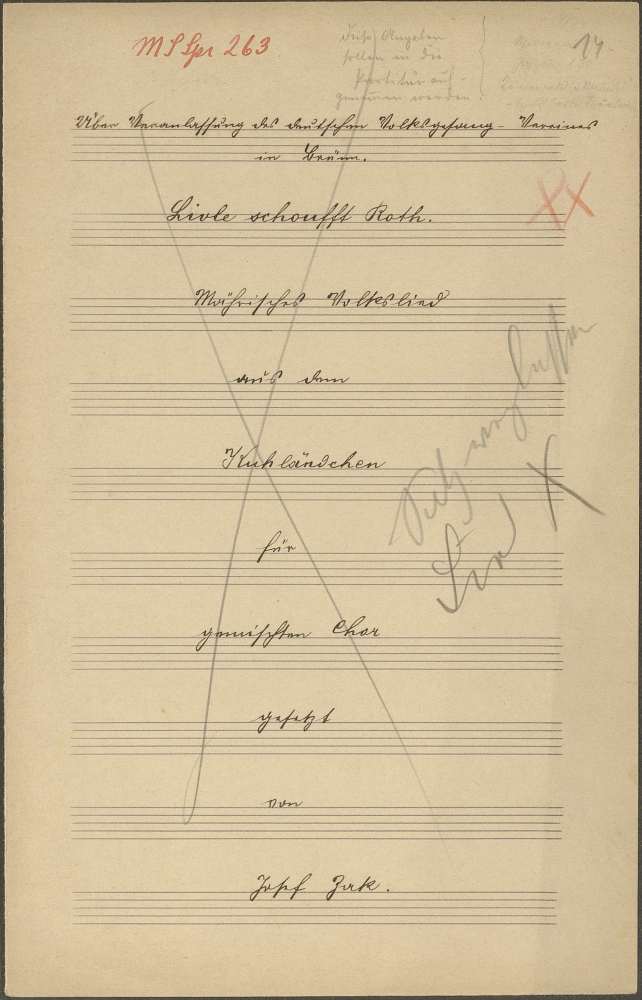 MS Spr 263
Diese Angaben
sollen in die
Partitur auf-
genommen werden.
14.
Über Veranlassung des deutschen Volksgesang-Vereines
in Brünn.
Liole schoufft Roth.
XX
Mährisches Volkslied
aus dem
Kuhländchen
für
gemischten Chor
gesetzt
von
Josef Zak.
weglassen
X